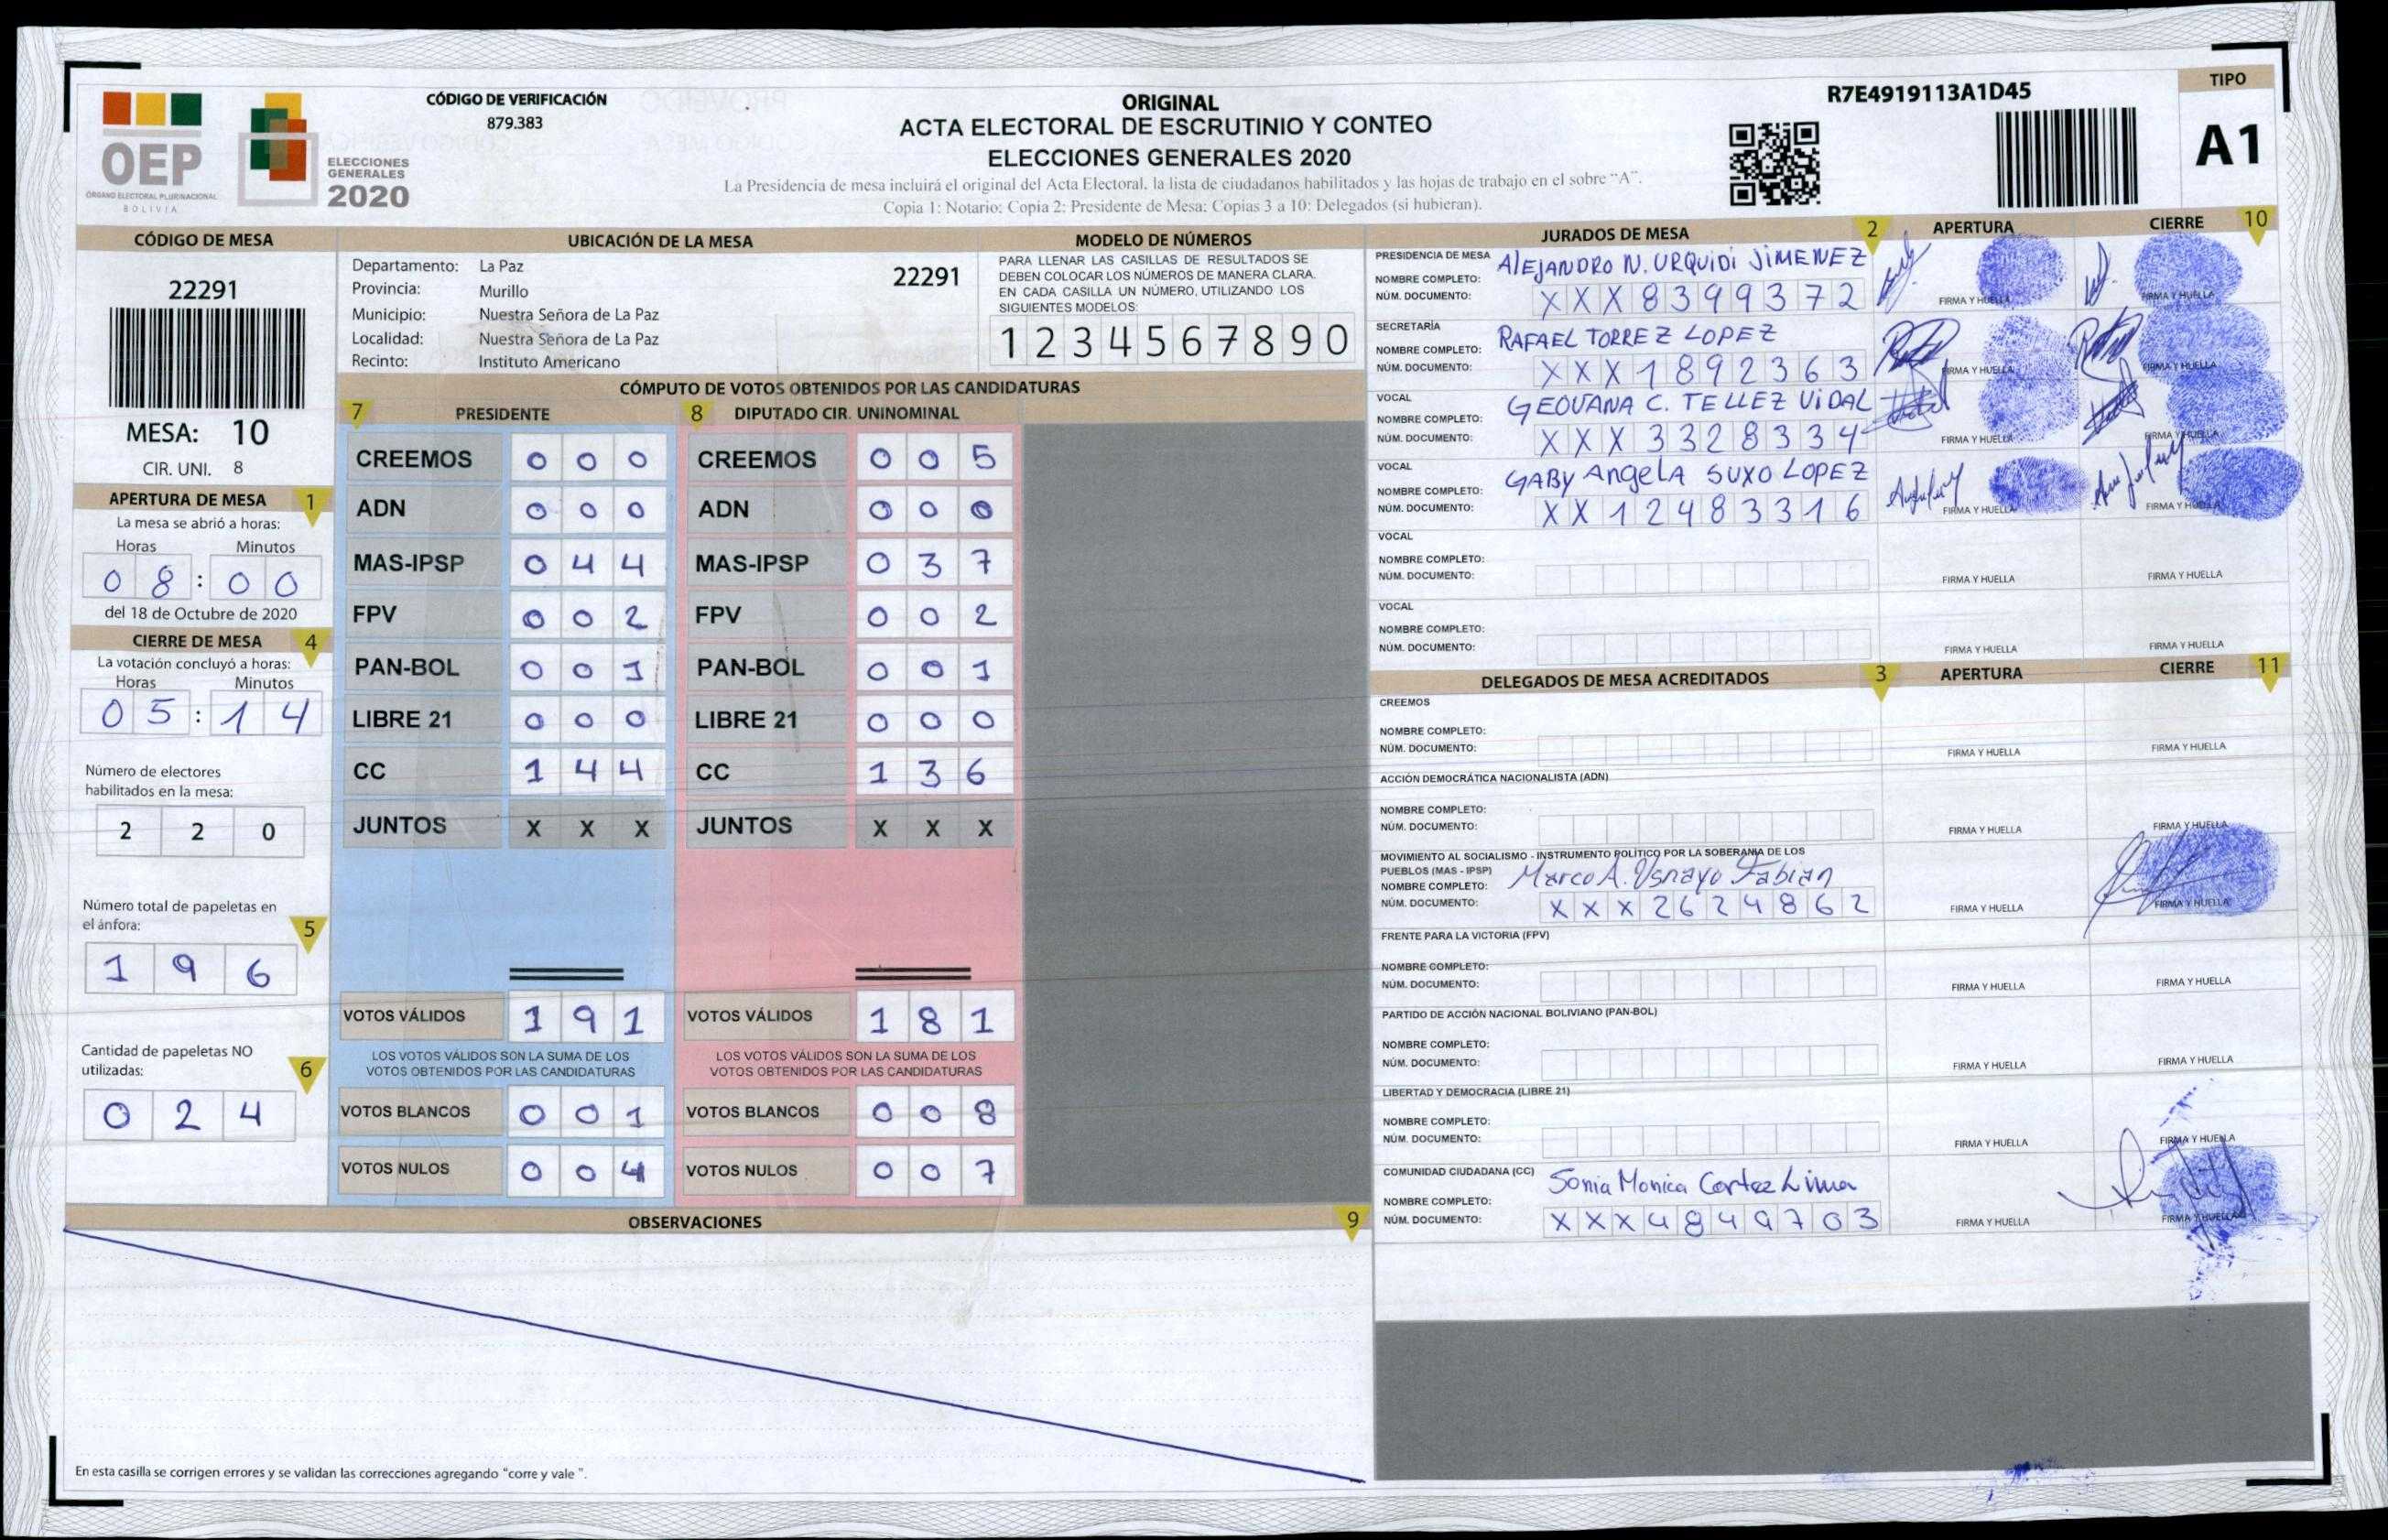 OEP
ÓRGANO ELECTORAL PLURINACIONAL
BOLIVIA
ELECCIONES
GENERALES
2020
CÓDIGO DE VERIFICACIÓN
879.383
ORIGINAL
ACTA ELECTORAL DE ESCRUTINIO Y CONTEO
ELECCIONES GENERALES 2020
La Presidencia de mesa incluirá el original del Acta Electoral, la lista de ciudadanos habilitados y las hojas de trabajo en el sobre "A".
Copia 1: Notario; Copia 2: Presidente de Mesa; Copias 3 a 10: Delegados (si hubieran).
R7E4919113A1D45
TIPO
A1
CÓDIGO DE MESA
22291
MESA: 10
CIR. UNI. 8
APERTURA DE MESA 1
La mesa se abrió a horas:
Horas Minutos
0 8 : 0 0
del 18 de Octubre de 2020
CIERRE DE MESA 4
La votación concluyó a horas:
Horas Minutos
0 5 : 1 4
Número de electores
habilitados en la mesa:
2 2 0
Número total de papeletas en
el ánfora: 5
1 9 6
Cantidad de papeletas NO
utilizadas: 6
0 2 4
UBICACIÓN DE LA MESA
Departamento: La Paz 22291
Provincia: Murillo
Municipio: Nuestra Señora de La Paz
Localidad: Nuestra Señora de La Paz
Recinto: Instituto Americano
MODELO DE NÚMEROS
PARA LLENAR LAS CASILLAS DE RESULTADOS SE
DEBEN COLOCAR LOS NÚMEROS DE MANERA CLARA.
EN CADA CASILLA UN NÚMERO, UTILIZANDO LOS
SIGUIENTES MODELOS:
1 2 3 4 5 6 7 8 9 0
CÓMPUTO DE VOTOS OBTENIDOS POR LAS CANDIDATURAS
7 PRESIDENTE 8 DIPUTADO CIR. UNINOMINAL
CREEMOS 0 0 0 CREEMOS 0 0 5
ADN 0 0 0 ADN 0 0 0
MAS-IPSP 0 4 4 MAS-IPSP 0 3 7
FPV 0 0 2 FPV 0 0 2
PAN-BOL 0 0 1 PAN-BOL 0 0 1
LIBRE 21 0 0 0 LIBRE 21 0 0 0
CC 1 4 4 CC 1 3 6
JUNTOS X X X JUNTOS X X X
VOTOS VÁLIDOS 1 9 1 VOTOS VÁLIDOS 1 8 1
LOS VOTOS VÁLIDOS SON LA SUMA DE LOS LOS VOTOS VÁLIDOS SON LA SUMA DE LOS
VOTOS OBTENIDOS POR LAS CANDIDATURAS VOTOS OBTENIDOS POR LAS CANDIDATURAS
VOTOS BLANCOS 0 0 1 VOTOS BLANCOS 0 0 8
VOTOS NULOS 0 0 4 VOTOS NULOS 0 0 7
OBSERVACIONES 9
En esta casilla se corrigen errores y se validan las correcciones agregando "corre y vale ".
JURADOS DE MESA 2 APERTURA CIERRE 10
PRESIDENCIA DE MESA
NOMBRE COMPLETO: ALEJANDRO N. URQUIDI JIMENEZ
NÚM. DOCUMENTO: X X X 8 3 9 9 3 7 2 FIRMA Y HUELLA FIRMA Y HUELLA
SECRETARÍA
NOMBRE COMPLETO: RAFAEL TORREZ LOPEZ
NÚM. DOCUMENTO: X X X 1 8 9 2 3 6 3 FIRMA Y HUELLA FIRMA Y HUELLA
VOCAL
NOMBRE COMPLETO: GEOVANA C. TELLEZ VIDAL
NÚM. DOCUMENTO: X X X 3 3 2 8 3 3 4 FIRMA Y HUELLA FIRMA Y HUELLA
VOCAL
NOMBRE COMPLETO: GABY AngeLA SUXO LOPEZ
NÚM. DOCUMENTO: X X 1 2 4 8 3 3 1 6 FIRMA Y HUELLA FIRMA Y HUELLA
VOCAL
NOMBRE COMPLETO:
NÚM. DOCUMENTO: FIRMA Y HUELLA FIRMA Y HUELLA
VOCAL
NOMBRE COMPLETO:
NÚM. DOCUMENTO: FIRMA Y HUELLA FIRMA Y HUELLA
DELEGADOS DE MESA ACREDITADOS 3 APERTURA CIERRE 11
CREEMOS
NOMBRE COMPLETO:
NÚM. DOCUMENTO: FIRMA Y HUELLA FIRMA Y HUELLA
ACCIÓN DEMOCRÁTICA NACIONALISTA (ADN)
NOMBRE COMPLETO:
NÚM. DOCUMENTO: FIRMA Y HUELLA FIRMA Y HUELLA
MOVIMIENTO AL SOCIALISMO - INSTRUMENTO POLÍTICO POR LA SOBERANIA DE LOS
PUEBLOS (MAS - IPSP)
NOMBRE COMPLETO: Marco A. Usnayo Fabian
NÚM. DOCUMENTO: X X X 2 6 2 4 8 6 2 FIRMA Y HUELLA FIRMA Y HUELLA
FRENTE PARA LA VICTORIA (FPV)
NOMBRE COMPLETO:
NÚM. DOCUMENTO: FIRMA Y HUELLA FIRMA Y HUELLA
PARTIDO DE ACCIÓN NACIONAL BOLIVIANO (PAN-BOL)
NOMBRE COMPLETO:
NÚM. DOCUMENTO: FIRMA Y HUELLA FIRMA Y HUELLA
LIBERTAD Y DEMOCRACIA (LIBRE 21)
NOMBRE COMPLETO:
NÚM. DOCUMENTO: FIRMA Y HUELLA FIRMA Y HUELLA
COMUNIDAD CIUDADANA (CC)
NOMBRE COMPLETO: Sonia Monica Cortez Lima
NÚM. DOCUMENTO: X X X 4 8 4 9 7 0 3 FIRMA Y HUELLA FIRMA Y HUELLA